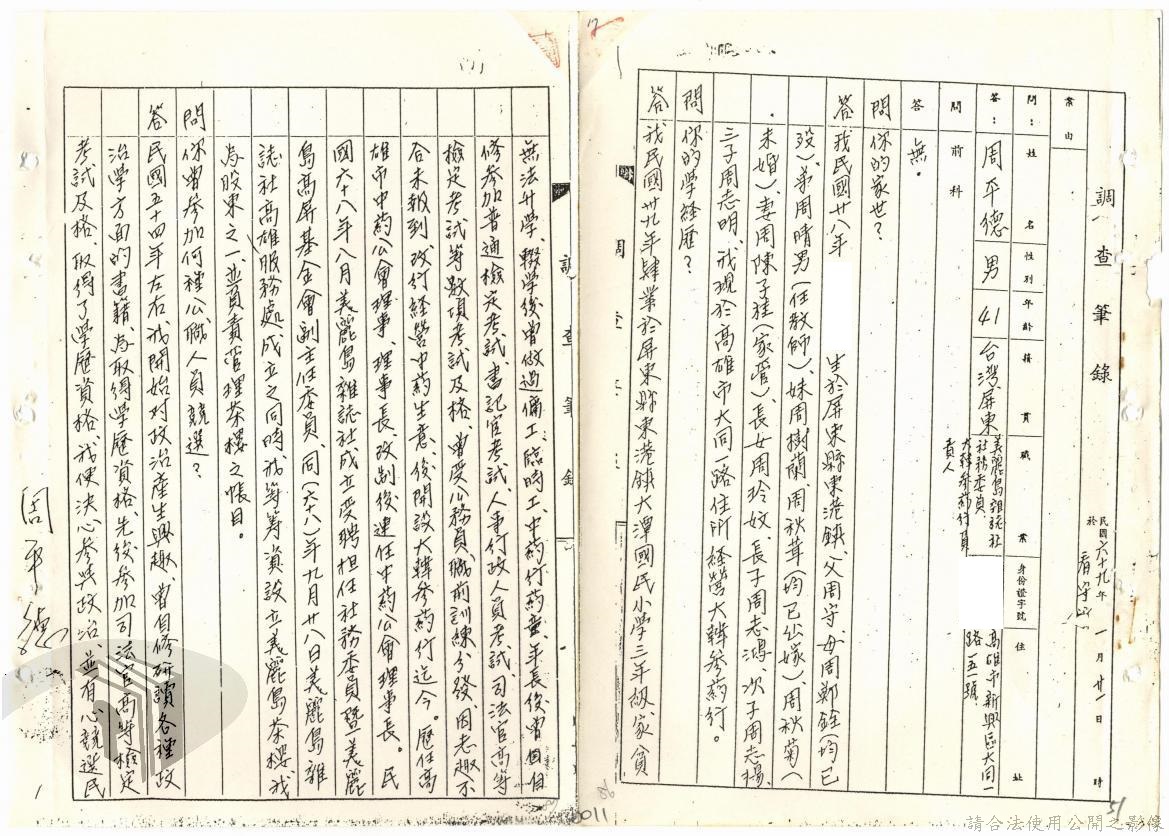 調查筆錄
民國六十九年一月廿一日 時
於看守所
案由
問：姓名 性別 年齡 籍貫 職業 身份證字號 住址
答：周平德 男 41 台灣屏東 美麗島雜誌社社務委員 大韓參葯行負責人 高雄市新興區大同一路五一號
問 前科
答 無。
問 你的家世？
答 我民國廿八年 生於屏東縣東港鎮、父周守母周鄭銓(均已
歿)、弟周晴男(任教師)、妹周樹蘭、周秋茸(均已出嫁)、周秋菊(
未婚)、妻周陳子桂(家管)、長女周玲妏、長子周志鴻、次子周志揚、
三子周志明、我現於高雄市大同一路住所經營大韓參葯行。
問 你的學經歷？
答 我民國卅九年肄業於屏東縣東港鎮大潭國民小學三年級、家貧
調查筆錄
無法升學、輟學後曾做過傭工、臨時工、中葯行葯童、年長後曾自
修參加普通檢定考試、書記官考試、人事行政人員考試、司法官高等
檢定考試等數項考試及格、曾受公務員職前訓練分發、因志趣不
合未報到、改行經營中葯生意、後開設大韓參葯行迄今。歷任高
雄市中葯公會理事、理事長、改制後連任中葯公會理事長。民
國六十八年八月美麗島雜誌社成立受聘担任社務委員暨美麗
島高屏基金會副主任委員、同(六十八)年九月廿八日美麗島雜
誌社高雄服務處成立之同時、我等籌資設立美麗島茶樓、我
為股東之一、並負責管理茶樓之帳目。
問 你曾參加何種公職人員競選？
答 民國五十四年左右我開始對政治產生興趣、曾自修研讀各種政
治學方面的書籍、為取得學歷資格先後參加司法官高等檢定
考試及格、取得了學歷資格、我便決心參與政治、並有心競選民
周平德
12
51
0011
請合法使用公開之影像